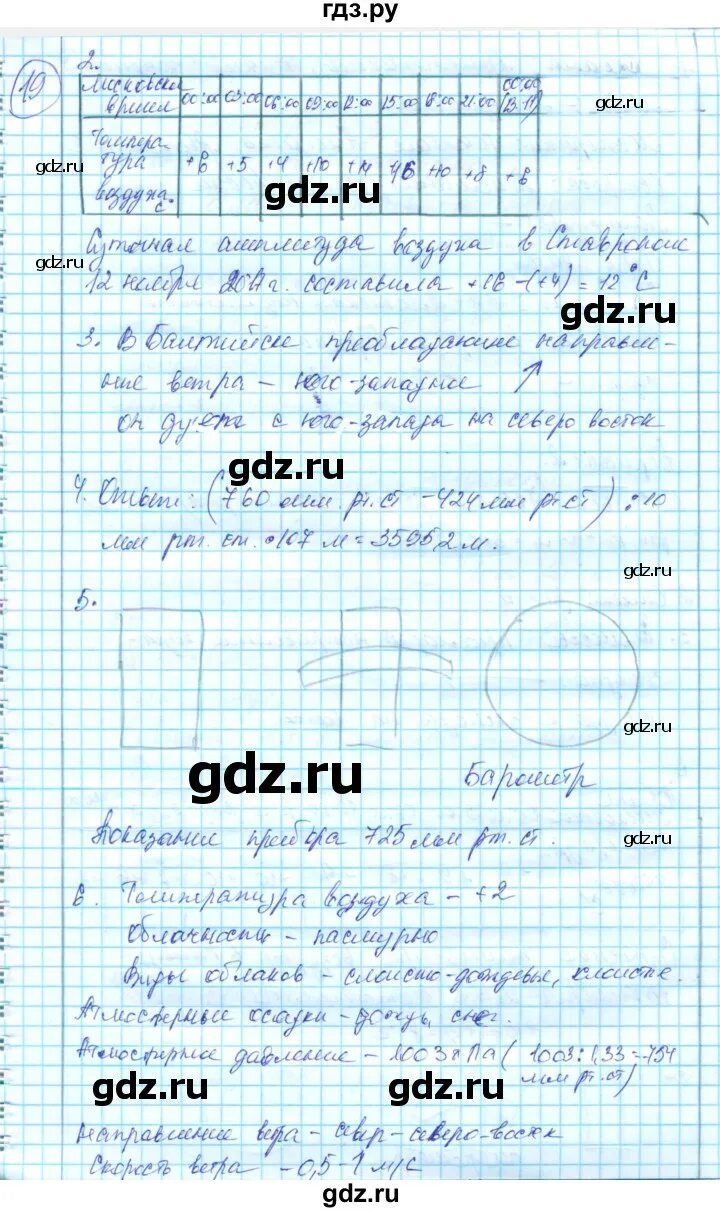 гдз.ру
19
2.
Московское время 00:00 03:00 06:00 09:00 12:00 15:00 18:00 21:00 00:00 (13.11)
Темпера-
тура
воздуха °С +6 +5 +4 +10 +14 +16 +10 +8 +8
gdz.ru
gdz.ru
gdz.ru
Суточная амплитуда воздуха в Ставрополе
gdz.ru
12 ноября 2017г. составила +16 -(+4) = 12°С
gdz.ru
3. В Балтийске преобладающие направле-
ние ветра – юго-западные ↗
он дует с юго-запада на северо восток
gdz.ru
4. Ответ: (760 мм. рт. ст - 424 мм рт. ст) : 10
мм рт. ст. • 107 м = 3595,2 м.
gdz.ru
5.
gdz.ru
gdz.ru
Барометр
Показание прибора 725 мм рт. ст.
gdz.ru
6. Температура воздуха - +2
Облачность - пасмурно
Виды облаков - слоисто-дождевые, слоистые.
gdz.ru
Атмосферные осадки - дождь, снег.
Атмосферное давление - 1003гПа ( 1003:1,33=754
мм рт. ст)
gdz.ru
gdz.ru
Направление ветра - север-северо-восток
Скорость ветра - 0,5-1 м/с
gdz.ru
gdz.ru
gdz.ru